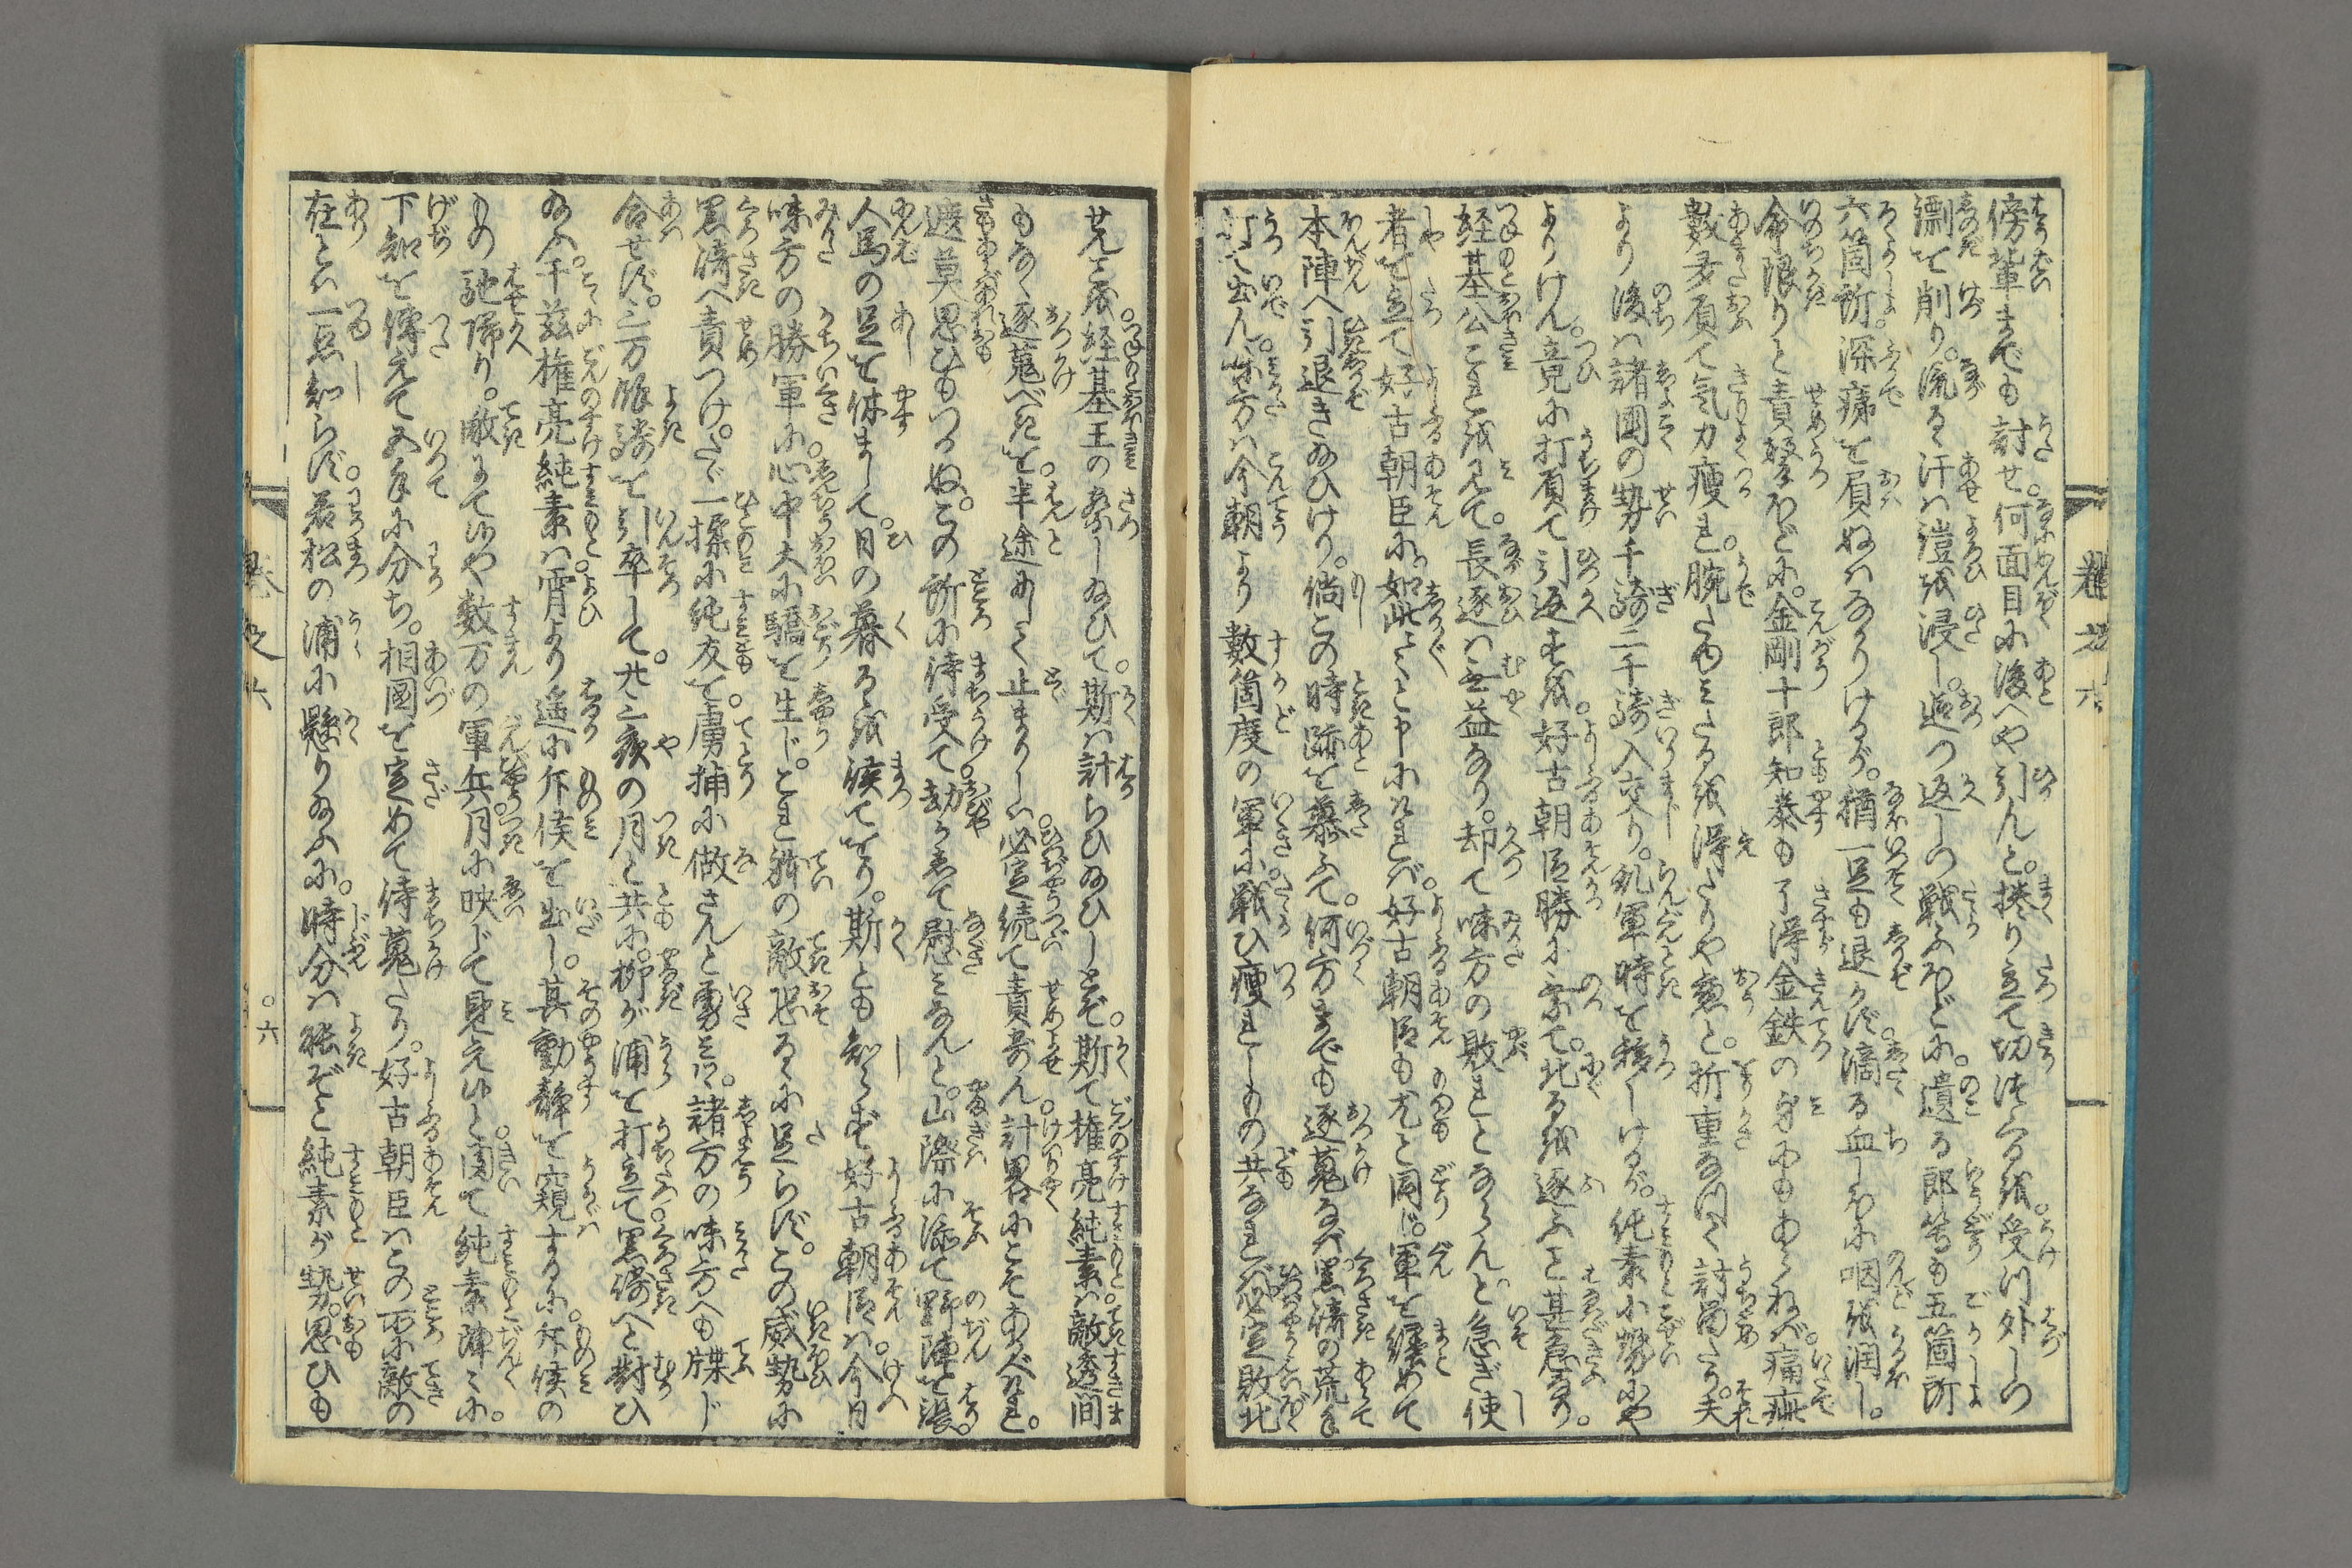 傍輩までも討せ。何面目に後へや引んと。捲り立て切まくるを。受つ外しつ
鏢を削り。流るゝ汗は鎧を浸し。追つ返しつ戦ふほどに。遺る郎等も五箇所
六箇所。深痛を屓ぬはなかりけるが。猶一足も退かず。滴る血しほに咽を潤し。
命限りと責撃ほどに。金剛十郎知恭も了得金鉄の身にもあらねば。痛疵
数多屓て気力疲れ。腕たゆみたるを得たりや応と。折重なつて討留たり。夫
より後は諸國の勢千騎二千騎入交り。乱軍時を移しけるが。純素小勢にや
よりけん。竟に打屓て引返すを。好古朝臣勝に乗て。北るを逐ふこと甚急なり。
経基公これを見て。長逐は無益なり。却て味方の敗れとならんと。急ぎ使
者を立て好古朝臣に。如此〱と申にければ。好古朝臣も尤と同じ。軍を纏めて
本陣へ引退き給ひけり。倘この時跡を慕ふて。何方までも逐蒐なば。黒濤の荒手
打て出ん。味方は今朝より数箇度の軍に戦ひ疲れしもの共なれば。必定敗北
せんこと。経基王の察し給ひて。斯は計らひ給ひしとぞ。斯て権亮純素は。敵透間
もなく逐蒐べきを。半途にして止まりしは。必定続て責寄ん。計畧にこそあるべけれ。
遮莫思ひもつかぬ。この所に待受て劫かして慰みなんと。山際に添て野陣を張。
人馬の足を休まして。日の暮るを俟てをり。斯とも知らず好古朝臣は。今日
味方の勝軍に。心中大に驕を生じ。これ躰の敵恐るゝに足らず。この威勢に
黒濤へ責つけ。たゞ一揉に純友を。虜捕に做さんと勇みけり。諸方の味方へも牒じ
合せず。二万余騎を引卒して。廿二夜の月と共に。柳が浦を打立て。黒濤へと對ひ
給ふ。于茲権亮純素は。宵より遥に斥候を出し。其動静を窺するに。斥候の
もの馳帰り。敵にてはや数万の軍兵。月に映じて見え候と。聞て純素陣々に。
下知を傳えて五手に分ち。相圖を定めて待蒐たり。好古朝臣はこの所に敵の
在とは一点知らず。若松の浦に懸り給ふに。時分は能ぞと純素が勢。思ひも
巻之六
〇六